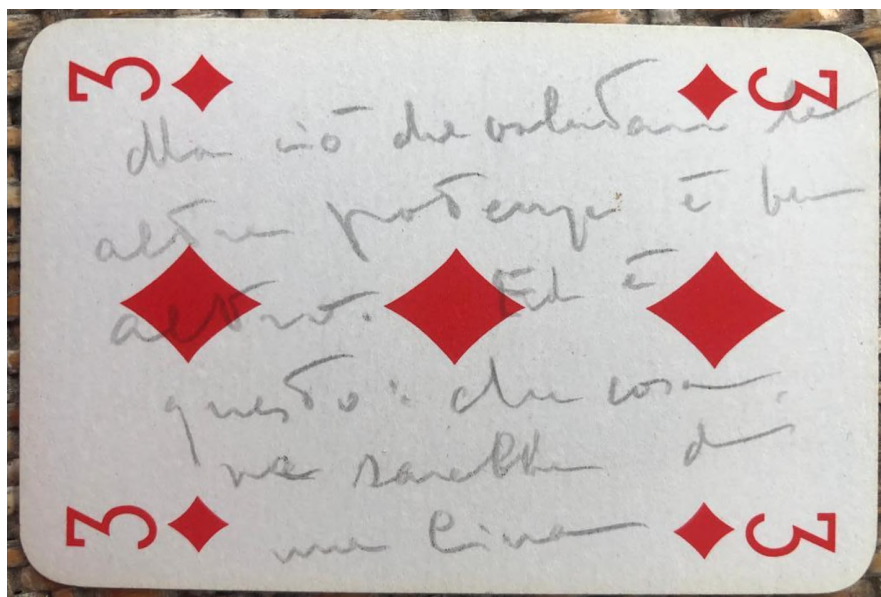 3 3
Ma ciò che valutano le
altre potenze è ben
altro. Ed è
questo: che cosa
ne sarebbe di
una Cina
3 3